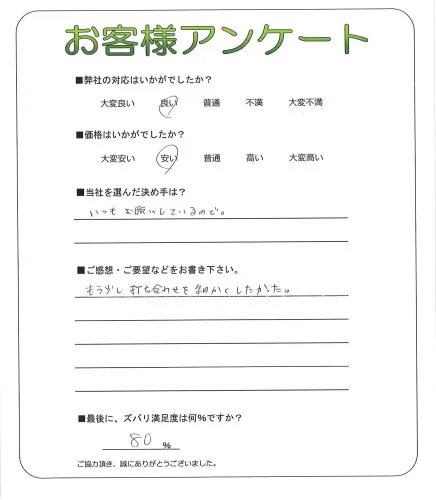 お客様アンケート
■弊社の対応はいかがでしたか？
大変良い 良い 普通 不満 大変不満
■価格はいかがでしたか？
大変安い 安い 普通 高い 大変高い
■当社を選んだ決め手は？
いつもお願いしているので。
■ご感想・ご要望などをお書き下さい。
もう少し打ち合わせを細かくしたかった。
■最後に、ズバリ満足度は何%ですか？
80 %
ご協力頂き、誠にありがとうございました。